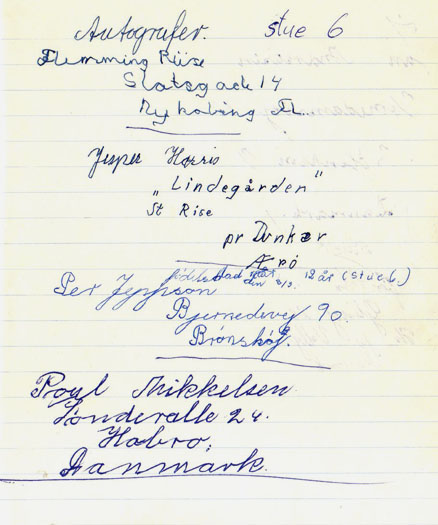 Autografer. stue 6
Flemming Riise
Slotsgade 14
Nykøbing Fl.
Jesper Harris
"Lindegården"
St Rise
pr Dunkær
Ærø
fødselsdag
den 12 år (stue 6.)
Per Jeppson
Bjernedevej 90.
Brønshøj.
Poul Mikkelsen
Sönderalle 24.
Hobro,
Danmark.